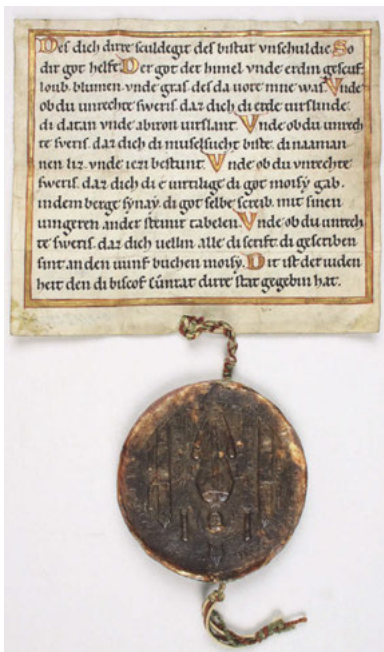 Des dich dirre sculdegit des bistur vnschuldic. So
dir got helfe. Der got der himel vnde erdin gescuf.
loub. blumen. vnde gras. des da uore nine was. Vnde
ob du unrechte sweris. daz dich di erde uirslunde.
di datan vnde abiron uirslant. Vnde ob du unrech
te sweris. daz dich di muselsucht biste. di naaman
nen liz. vnde iezi bestunt. Vnde ob du vnrechte
sweris. daz dich di e uirtilige di got moisy gab.
in dem berge synay. di got selbe screib. mit sinen
uingeren an der steinir tabelen. Vnde ob du unrech
te sweris. daz dich uellin. alle di scrift. di gescriben
sint. an den uunf buchen moisy. Dit ist der iuden
heit den di biscof Cunrat dirre stat gegebin hat.